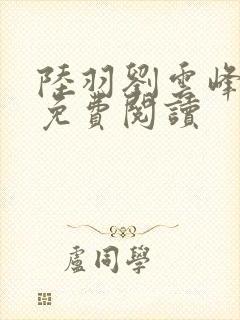 陸羽劉雲峰
免費閱讀
盧同學